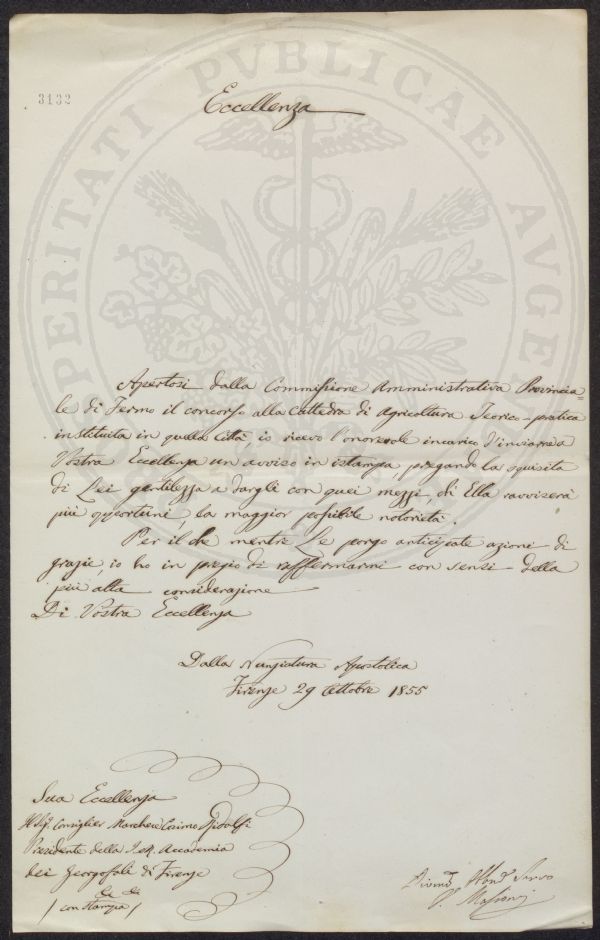 3132
PROSPERITATI PVBLICAE AVGENDAE
Eccellenza
Apertosi dalla Commissione Amministrativa Provincia=
le di Fermo il concorso alla Cattedra di Agricoltura Teorico-pratica
instituita in quella Città io ricevo l'onorevole incarico d'inviarne a
Vostra Eccellenza un avviso in istampa, pregando la squisita
di Lei gentilezza a dargli con quei mezzi, ch'Ella ravviserà
più opportuni la maggior possibile notorietà.
Per il che mentre Le porgo anticipate azioni di
grazie, io ho in pregio di raffermarmi con sensi della
più alta considerazione
Di Vostra Eccellenza
Dalla Nunziatura Apostolica
Firenze 29 Ottobre 1855
Sua Eccellenza
Il Sig. Consiglier Marchese Cosimo Ridolfi
Presidente della I. e R. Accademia
dei Georgofili di Firenze
/ con stampa /
Servo